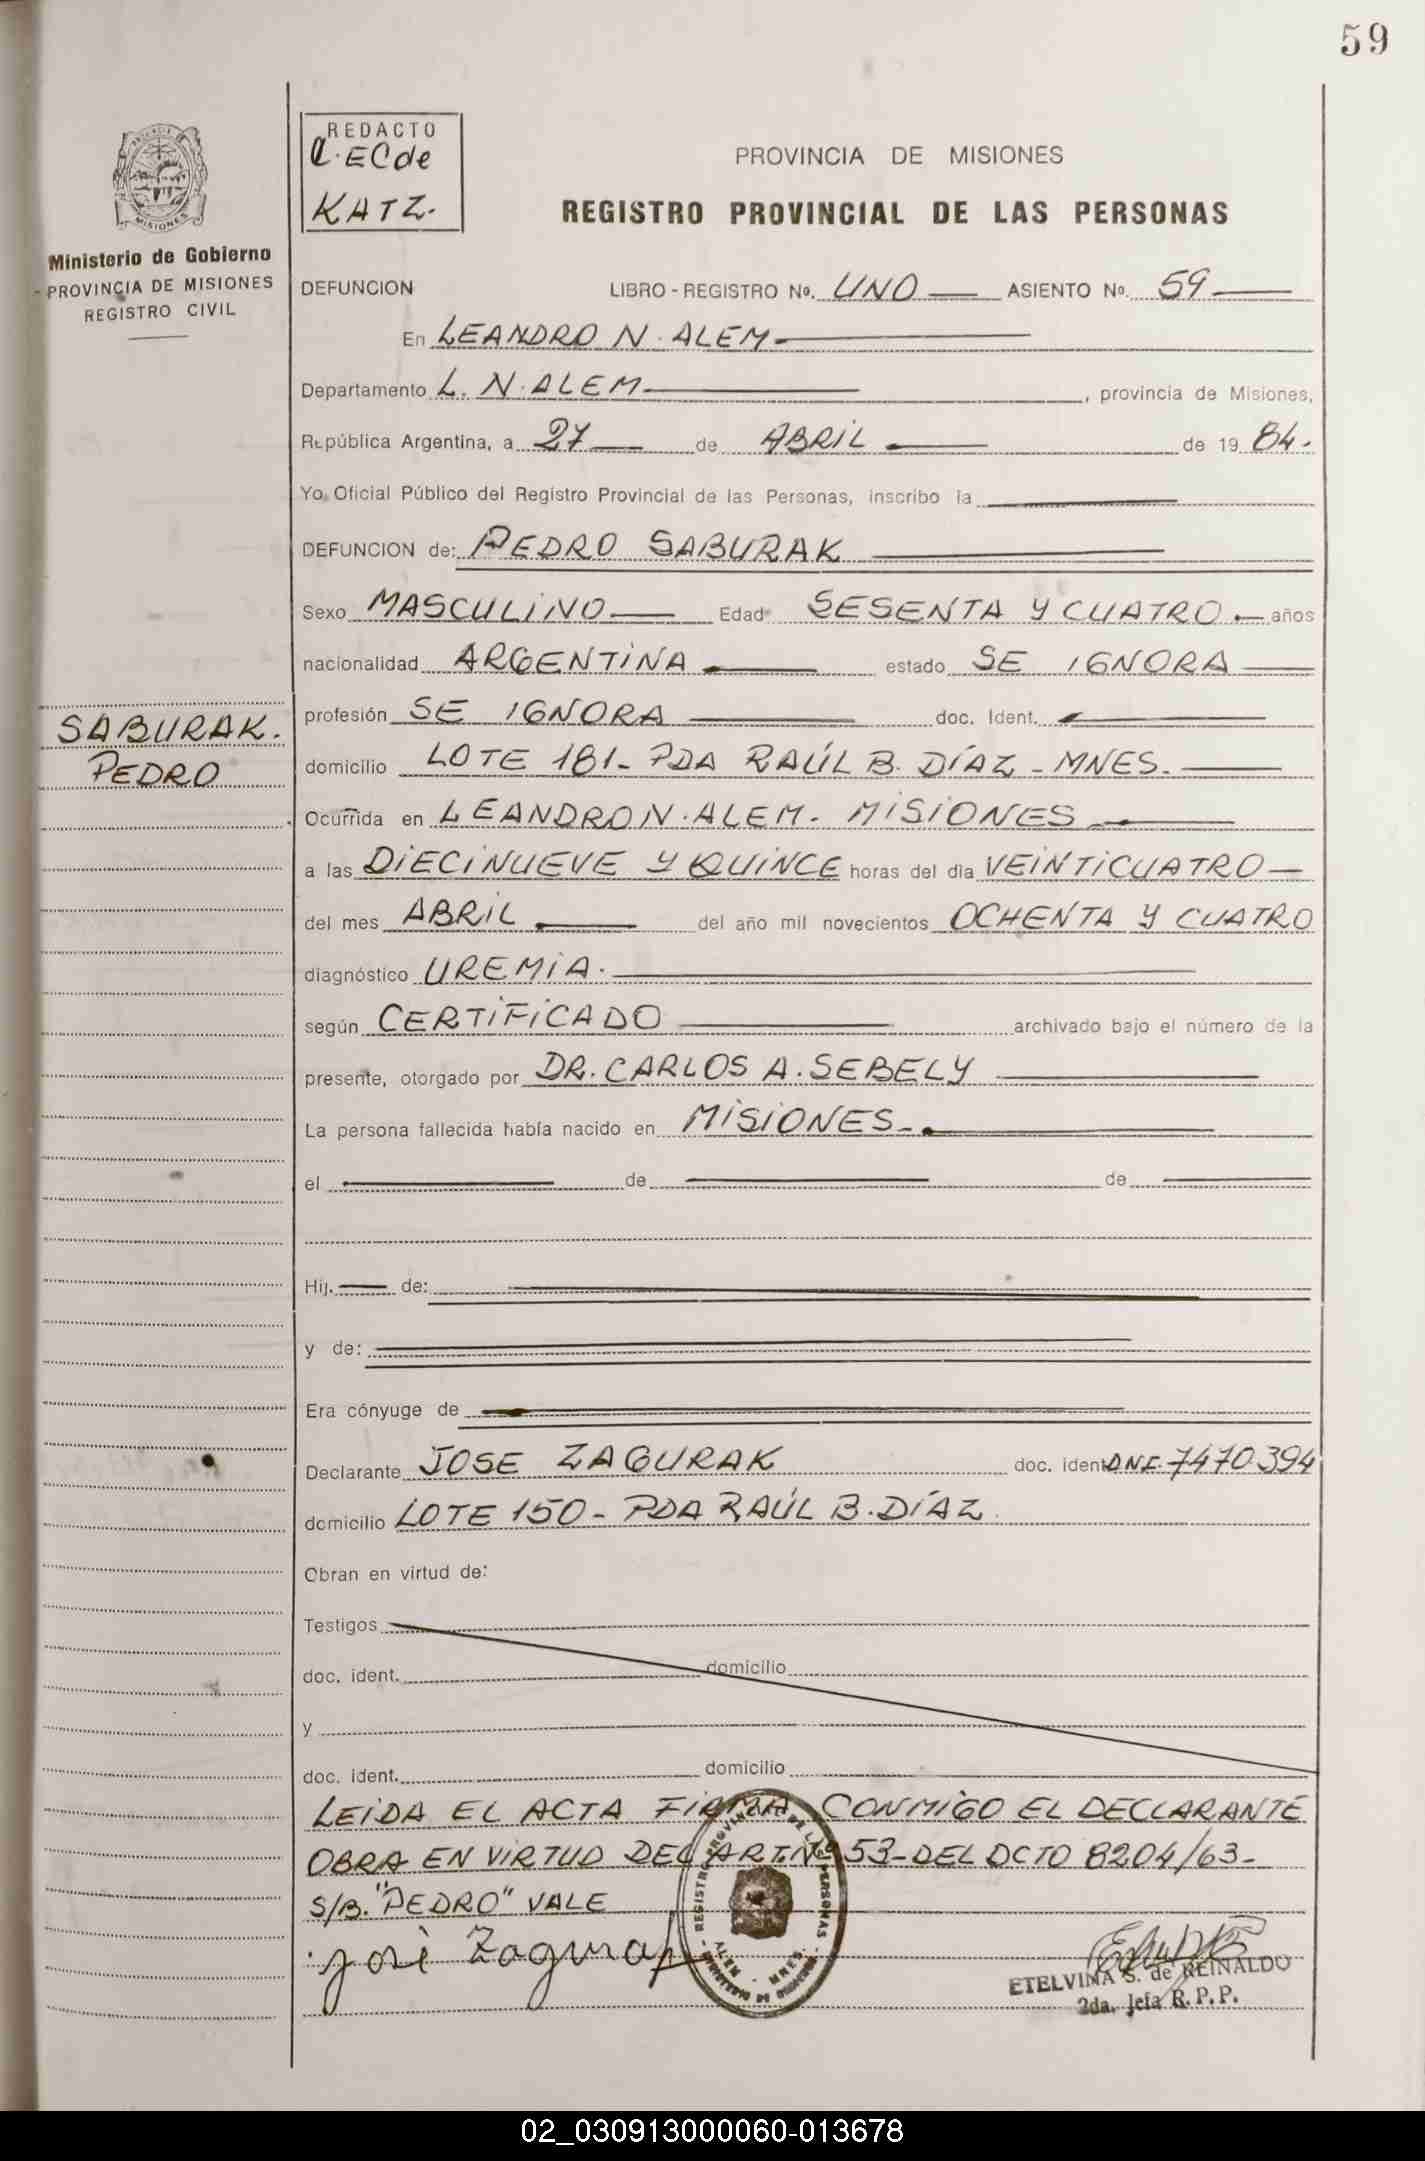 59
REDACTO
C. EC de
KATZ.
PROVINCIA DE MISIONES
REGISTRO PROVINCIAL DE LAS PERSONAS
MISIONES
Ministerio de Gobierno
PROVINCIA DE MISIONES
REGISTRO CIVIL
DEFUNCION LIBRO - REGISTRO Nº. UNO ASIENTO Nº. 59
En LEANDRO N. ALEM
Departamento L. N. ALEM, provincia de Misiones,
República Argentina, a 27 de ABRIL de 19 84.
Yo, Oficial Público del Registro Provincial de las Personas, inscribo la
DEFUNCION de: PEDRO SABURAK
Sexo MASCULINO Edad SESENTA Y CUATRO años
nacionalidad ARGENTINA estado SE IGNORA
SABURAK.
PEDRO
profesión SE IGNORA doc. Ident.
domicilio LOTE 181- PDA RAÚL B. DÍAZ - MNES.
Ocurrida en LEANDRO N. ALEM. MISIONES
a las DIECINUEVE Y QUINCE horas del día VEINTICUATRO
del mes ABRIL del año mil novecientos OCHENTA Y CUATRO
diagnóstico UREMIA.
según CERTIFICADO archivado bajo el número de la
presente, otorgado por DR. CARLOS A. SEBELY
La persona fallecida había nacido en MISIONES
el de de
Hij. de:
y de:
Era cónyuge de
Declarante JOSE ZAGURAK doc. ident DNI. 7470394
domicilio LOTE 150 - PDA RAÚL B. DÍAZ
Obran en virtud de:
Testigos
doc. ident. domicilio
y
doc. ident. domicilio
LEIDA EL ACTA FIRMA CONMIGO EL DECLARANTE
OBRA EN VIRTUD DEL ART Nº 53 - DEL DCTO 8204/63-
S/B. "PEDRO" VALE
José Zagurak
REGISTRO PROVINCIAL DE LAS PERSONAS
MNES.
ETELVINA S. de REINALDO
2da. Jefa R. P. P.
02_030913000060-013678